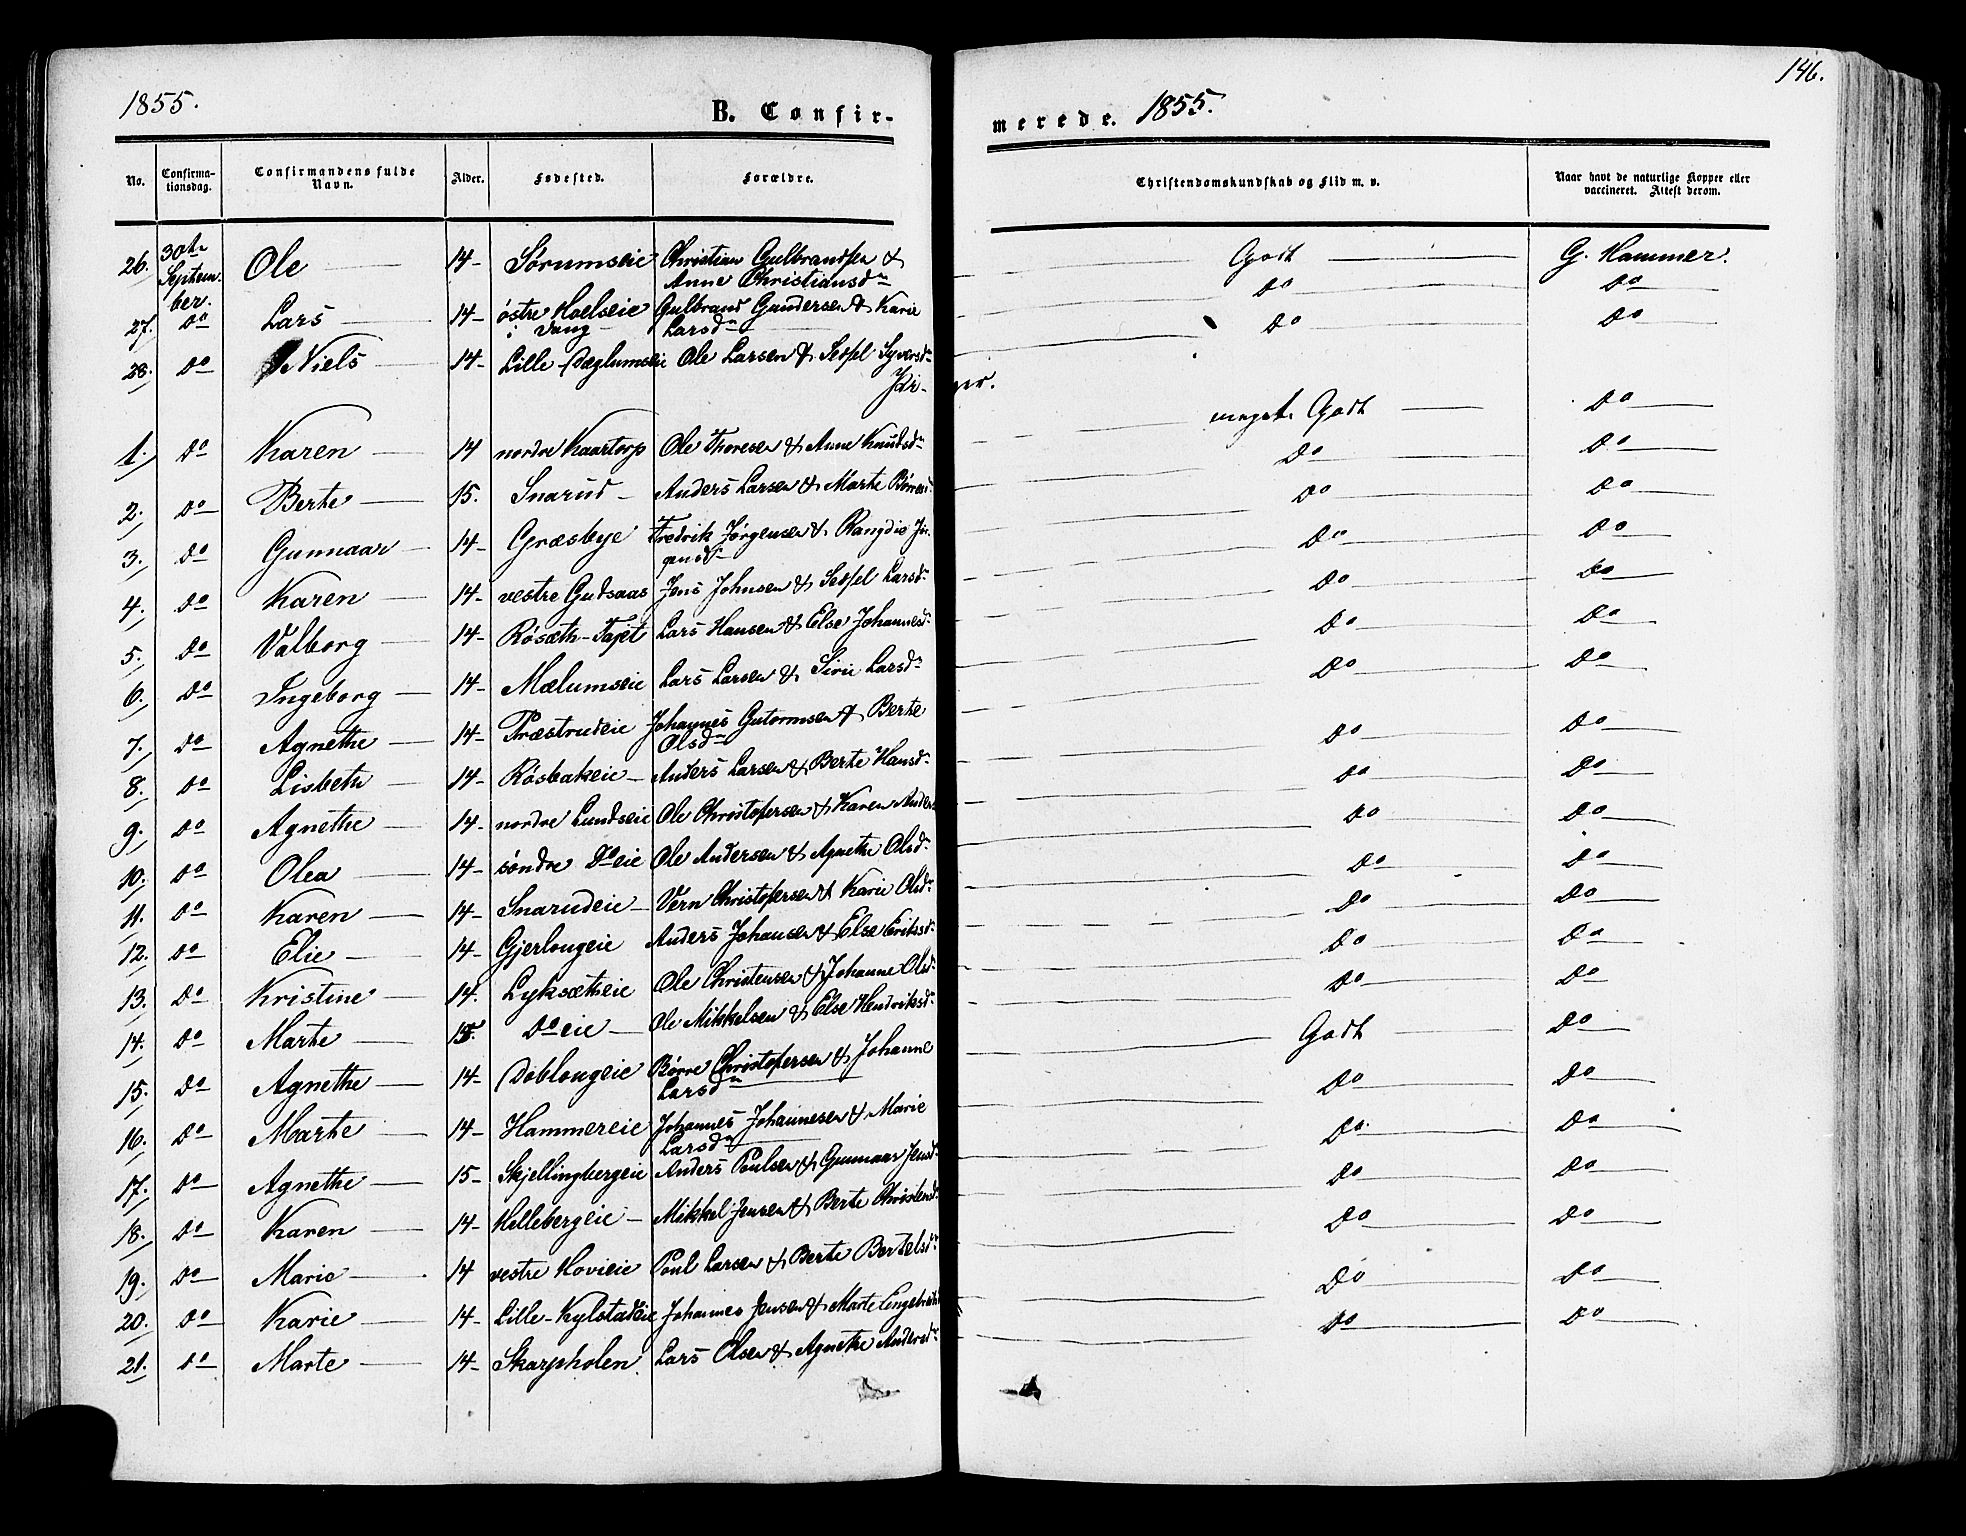 1855.
B. Confir-
No.
Confirma-
tionsdag.
Confirmandens fulde
Navn.
Alder.
Fødested.
Forældre.
26. 30te Septem- ber. Ole 14 Sørumseie Christian Gulbrandsen &
Anne Christiansdn
27. Do Lars 14 østre Hoelseie Gulbrand Gundersen & Karie
i Vang Larsdn
28. Do Niels 14 Lille-Dæglumseie Ole Larsen & Sidsel Syversdn
Pi-
1. Do Karen 14 nordre Kaartorp Ole Thoresen & Anne Knudsdn
2. Do Berte 15. Snarud Anders Larsen & Marte Børresd
3. Do Gunnaar 14 Græsbye Fredrik Jørgensen & Rangdie Jør-
gensdn
4. Do Karen 14 vestre Gudsaas Jens Johnsen & Sidsel Larsdn
5. Do Valborg 14 Røsæth-Fajet Lars Hansen & Else Johannesdn
6. Do Ingeborg 14 Mælumseie Lars Larsen & Sirie Larsdn
7. Do Agnethe 14 Præstrudeie Johannes Gutormsen & Berte
Olsdn
8. Do Lisbeth 14 Røsbakeie Anders Larsen & Berte Hansdn
9. Do Agnethe 14 nordre Lundseie Ole Christofersen & Karen Anders
10. Do Olea 14 søndre Do eie Ole Andersen & Agnethe Olsdn
11. Do Karen 14 Snarudeie Vern Christofersen & Karie Olsdn
12. Do Elie 14 Gjerlougeie Anders Johansen & Else Eriksdn
13. Do Kristine 14. Lyksætheie Ole Christensen & Johanne Olsdn
14. Do Marte 15. Do eie Ole Mikkelsen & Else Hendriksdn
15. Do Agnethe 14 Doblougeie Børre Christofersen & Johanne
Larsdn
16. Do Marthe 14 Hammereie Johannes Johannesen & Marie
Larsdn
17. Do Agnethe 15 Skjellingbergeie Anders Poulsen & Gunnaar Jensdn
18. Do Karen 14 Hellebergeie Mikkel Jensen & Berte Christensd
19. Do Marie 14 vestre Hovieie Poul Larsen & Berte Bertelsdn
20. Do Karie 14 Lille-Kylstadeie Johannes Jensen & Marte Engebretsd
21. Do Marte 14 Skarpholen. Lars Olsen & Agnethe Andersdn
146.
merede. 1855.
Christendomskundskab og Flid m. v.
Naar havt de naturlige Kopper eller
vaccineret. Attest derom.
Godt G. Hammer.
Do Do
Do Do
ger.
meget Godt Do
Do Do
Do Do
Do Do
Do Do
Do Do
Do Do
Do Do
Do Do
Do Do
Do Do
Do Do
Do Do
Do Do
Godt Do
Do Do
Do. Do
Do Do
Do Do
Do Do
Do Do